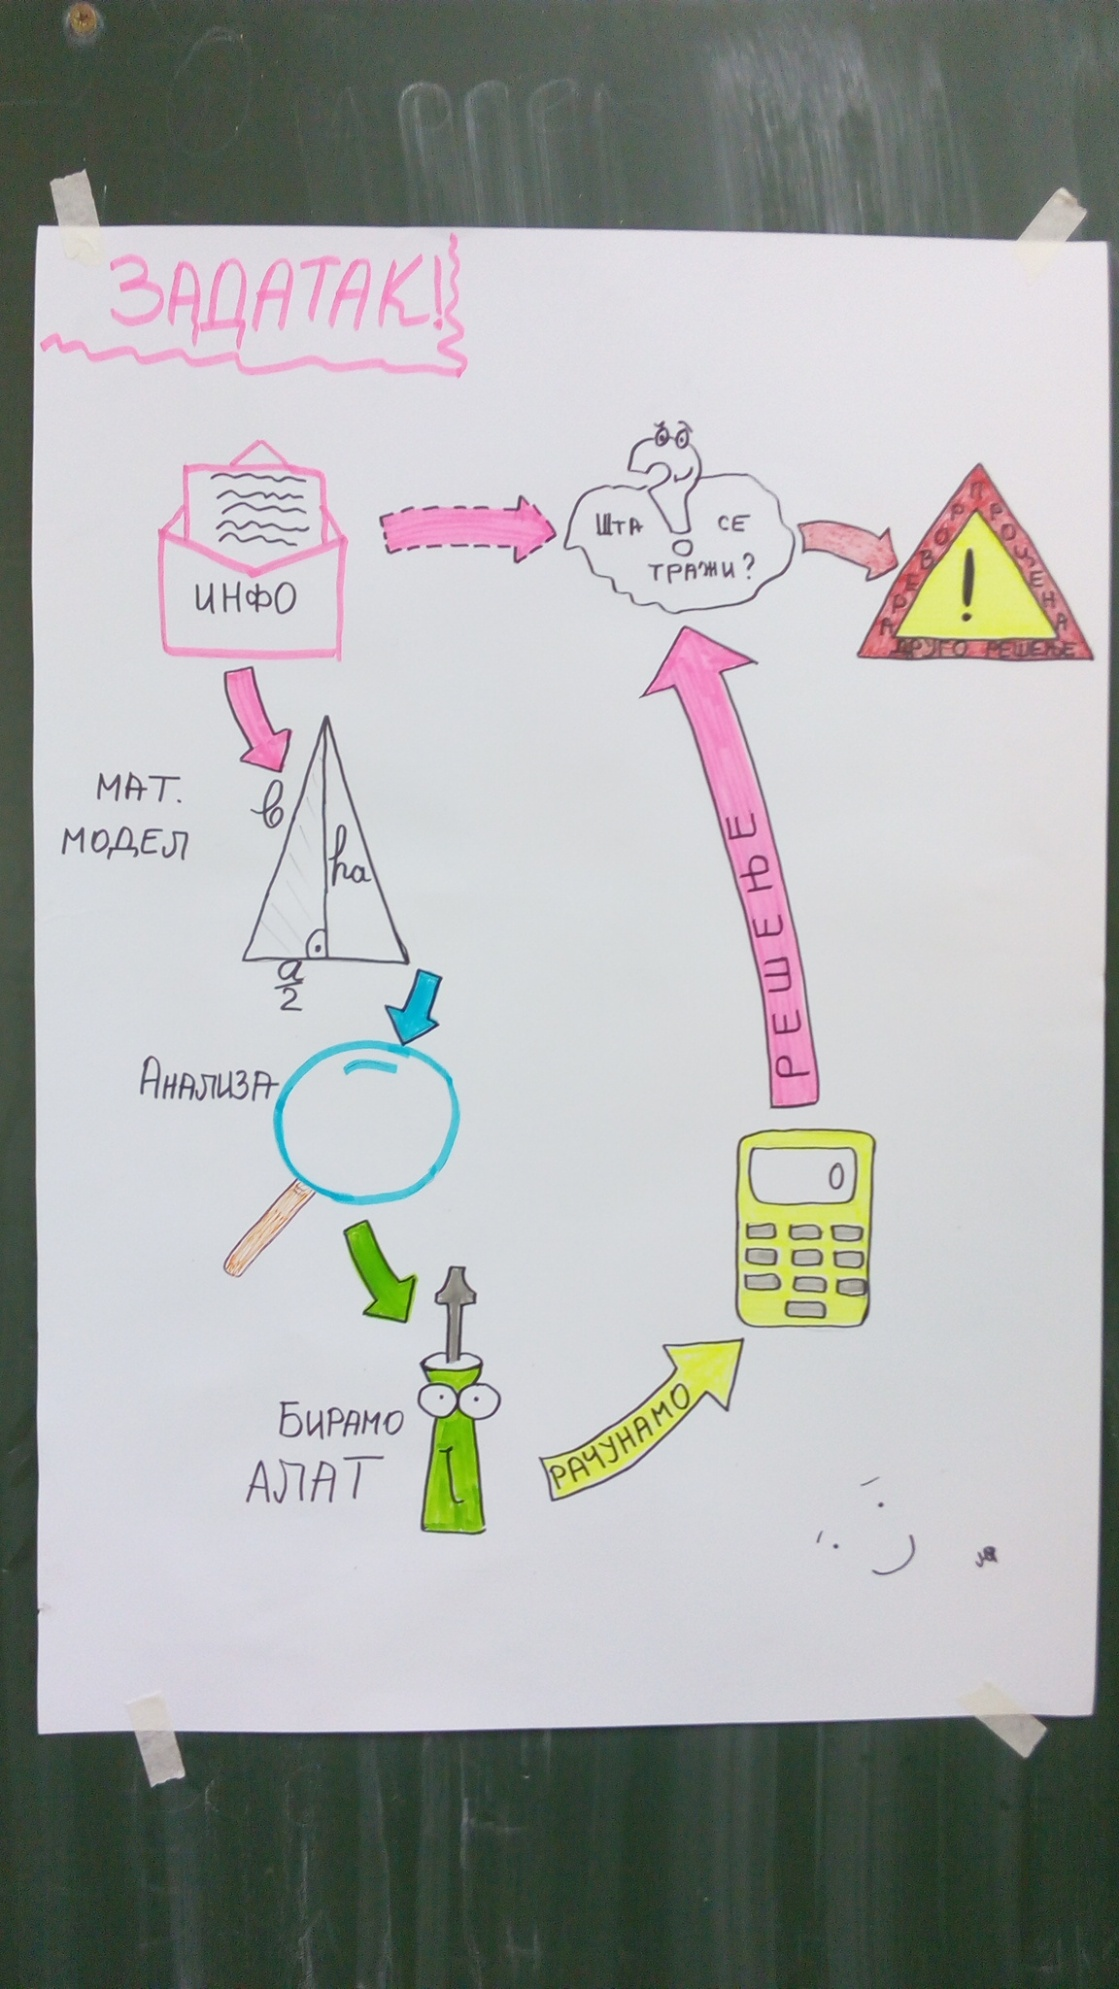 ЗАДАТАК!
ИНФО
ШТА СЕ
ТРАЖИ?
!
ПРОЦЕНА
ДРУГО РЕШЕЊЕ
МАТ.
МОДЕЛ
b
ha
a
2
АНАЛИЗА
БИРАМО
АЛАТ
РАЧУНАМО
0
РЕШЕЊЕ